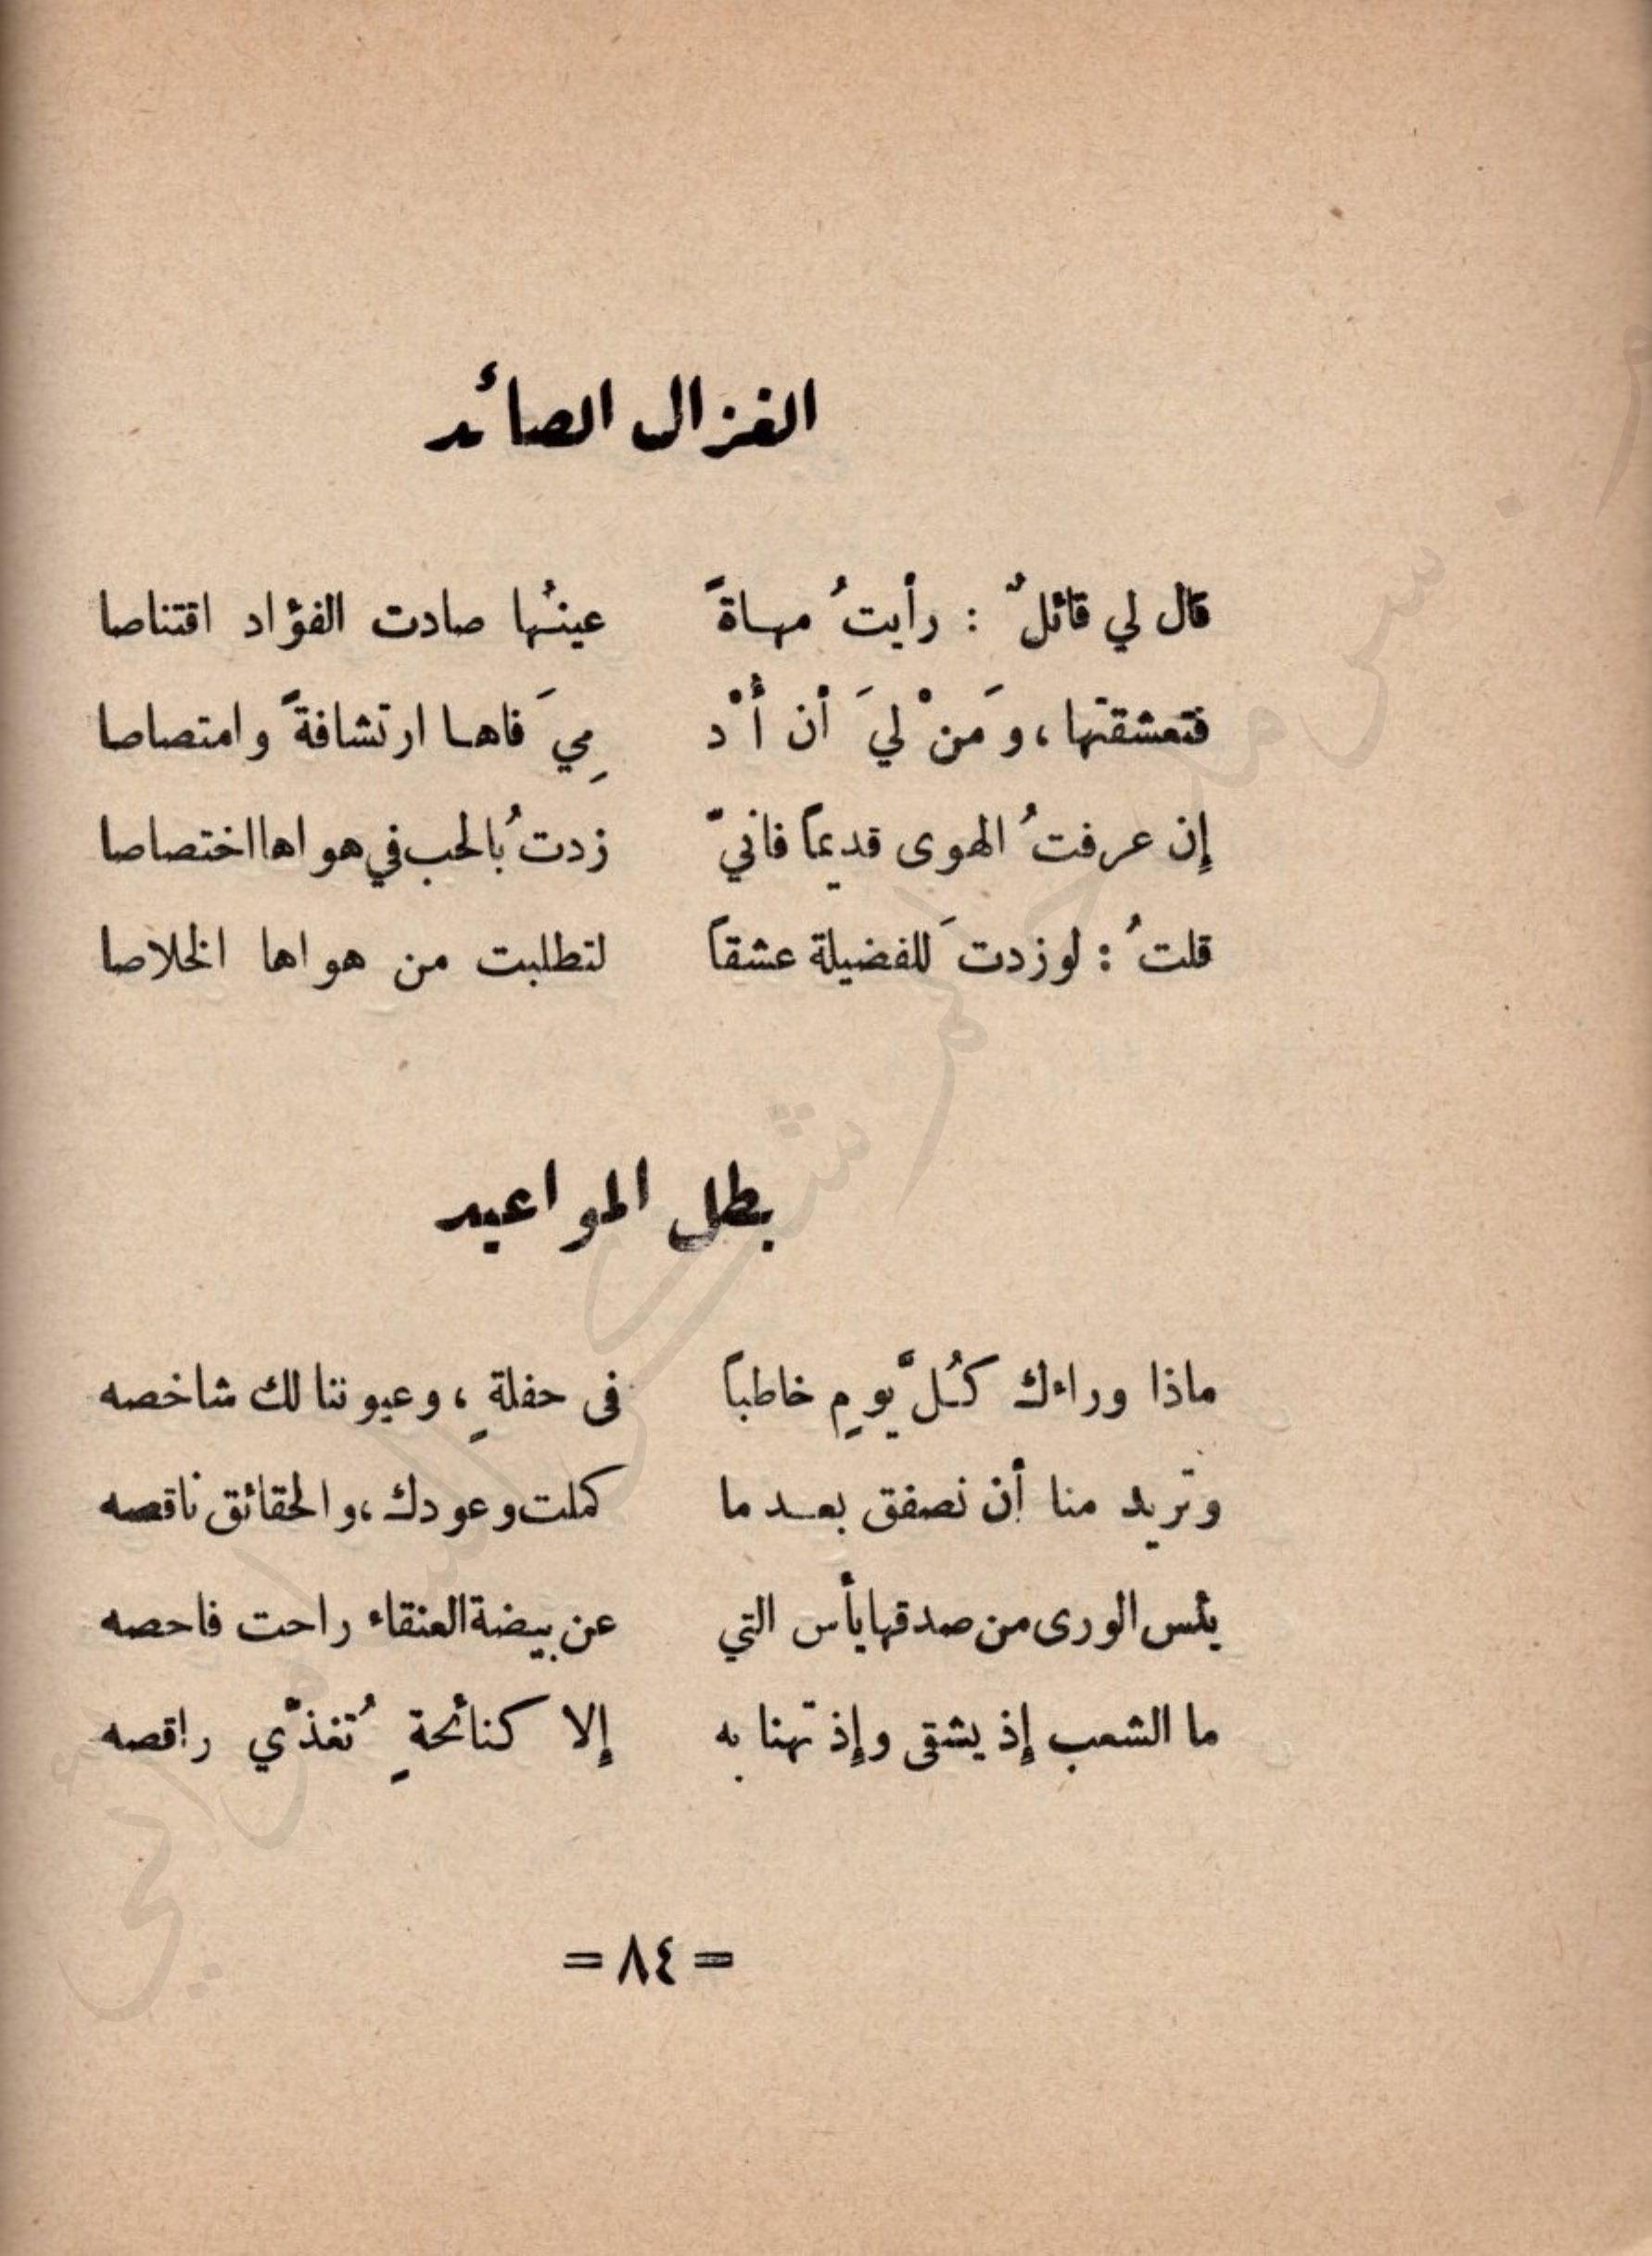 الغزال الصائد
قال لي قائلٌ : رأيتُ مهاةً عينُها صادت الفؤاد اقتناصا
فتعشقتها ، وَمَنْ ليَ أن أُدْ مِيَ فاها ارتشافةً وامتصاصا
إن عرفتُ الهوى قديماً فانيّ زدتُ بالحب في هواها اختصاصا
قلتُ : لو زدتَ للفضيلة عشقاً لتطلبت من هواها الخلاصا
بطل المواعيد
ماذا وراءك كُلَّ يومٍ خاطباً في حفلةٍ ، وعيوننا لك شاخصه
وتريد منا أن نصفق بعد ما كملت وعودك ، والحقائق ناقصه
يئس الورى من صدقها يأس التي عن بيضة العنقاء راحت فاحصه
ما الشعب إذ يشقى وإذ تهنا به إلا كنائحةٍ تُغذّي راقصه
= ٨٤ =